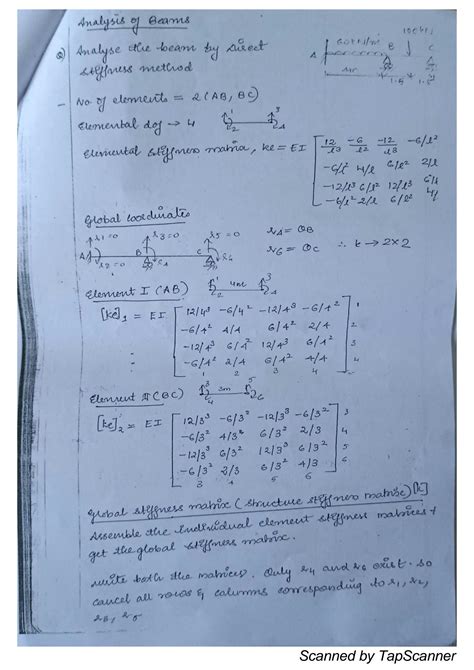 Analysis of Beams
Q) Analyse the beam by direct
stiffness method
60 kN/m
100 kN
A B C
4m 1.5 1.5
- No of elements = 2 (AB, BC)
Elemental dof → 4
1 3
2 4
Elemental stiffness matrix, ke = EI
12/l³ -6/l² -12/l³ -6/l²
-6/l² 4/l 6/l² 2/l
-12/l³ 6/l² 12/l³ 6/l²
-6/l² 2/l 6/l² 4/l
Global coordinates
r1=0 r3=0 r5=0
A B C
r2=0 r4 r6
r4 = θB
r6 = θC ∴ k → 2×2
Element I (AB) 4m
[ke]1 = EI
12/4³ -6/4² -12/4³ -6/4² 1
-6/4² 4/4 6/4² 2/4 2
-12/4³ 6/4² 12/4³ 6/4² 3
-6/4² 2/4 6/4² 4/4 4
1 2 3 4
Element II (BC) 3m
[ke]2 = EI
12/3³ -6/3² -12/3³ -6/3² 3
-6/3² 4/3 6/3² 2/3 4
-12/3³ 6/3² 12/3³ 6/3² 5
-6/3² 2/3 6/3² 4/3 6
3 4 5 6
Global stiffness matrix (structure stiffness matrix) [k]
Assemble the individual element stiffness matrices &
get the global stiffness matrix.
write both the matrices. Only r4 and r6 exist. so
cancel all rows & columns corresponding to r1, r2,
Scanned by TapScanner